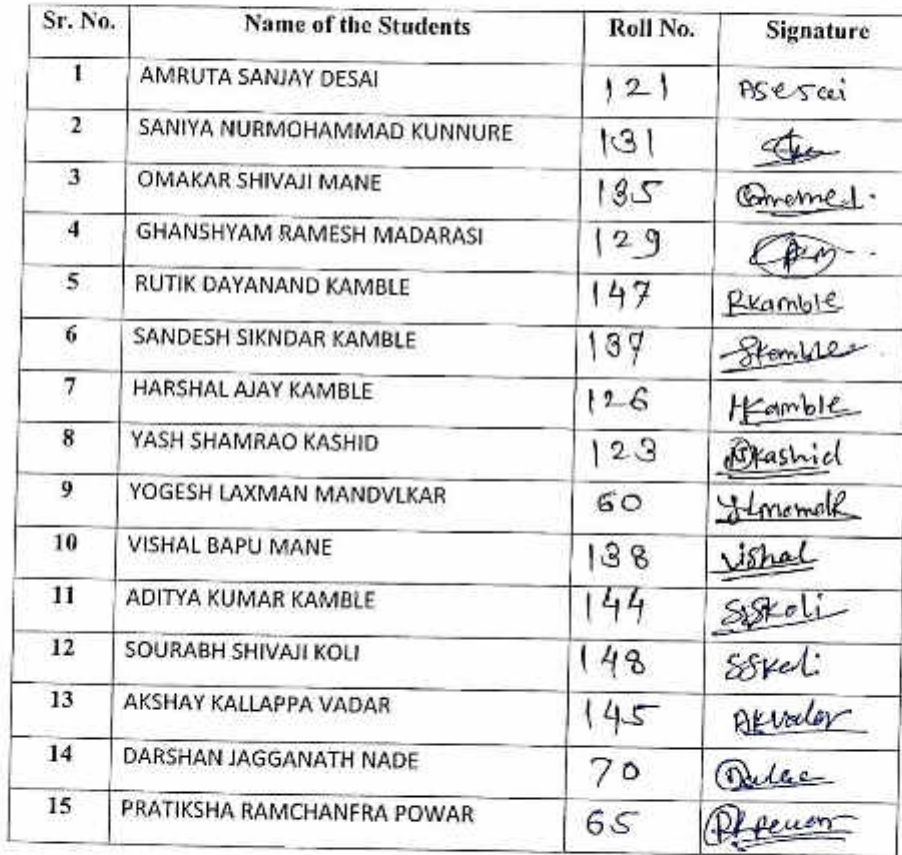 Sr. No. Name of the Students Roll No. Signature
1 AMRUTA SANJAY DESAI 121
2 SANIYA NURMOHAMMAD KUNNURE 131
3 OMAKAR SHIVAJI MANE 135
4 GHANSHYAM RAMESH MADARASI 129
5 RUTIK DAYANAND KAMBLE 147 Rkamble
6 SANDESH SIKNDAR KAMBLE 137
7 HARSHAL AJAY KAMBLE 126 HKamble
8 YASH SHAMRAO KASHID 123
9 YOGESH LAXMAN MANDVLKAR 60
10 VISHAL BAPU MANE 138 Vishal
11 ADITYA KUMAR KAMBLE 144 SSKoli
12 SOURABH SHIVAJI KOLI 148 SSKoli
13 AKSHAY KALLAPPA VADAR 145 AKVadar
14 DARSHAN JAGGANATH NADE 70
15 PRATIKSHA RAMCHANFRA POWAR 65